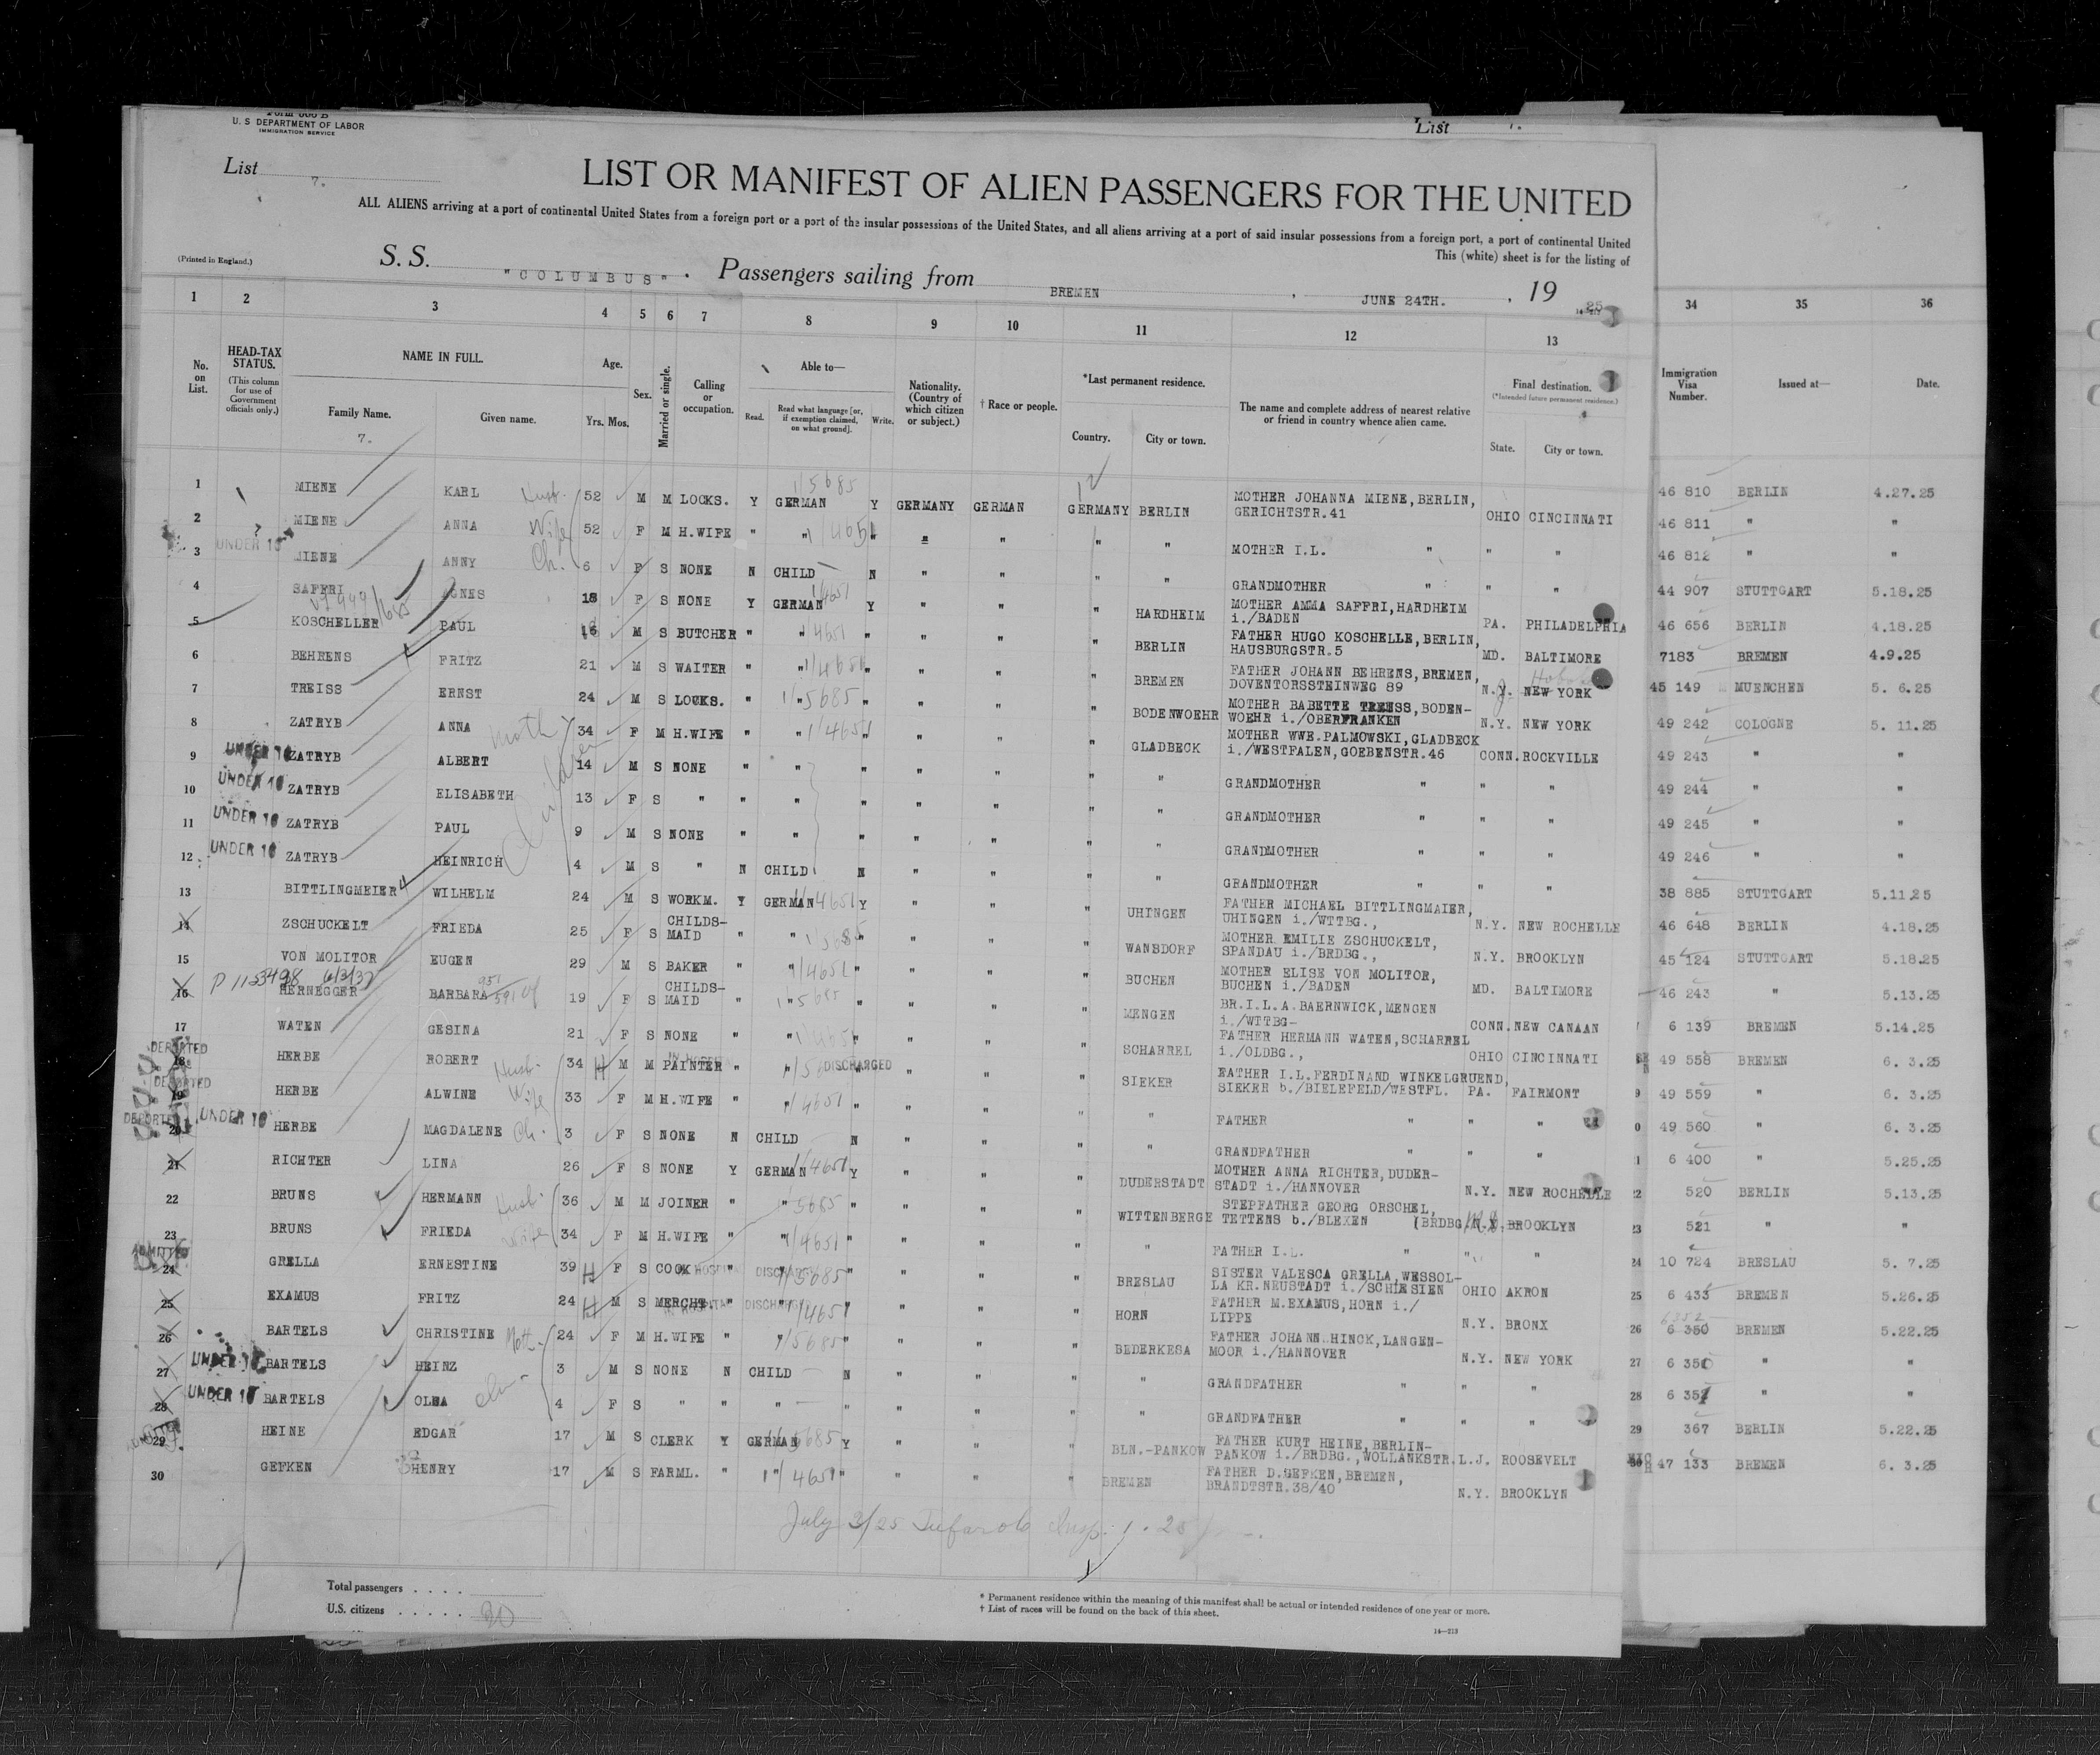 Form 500 B
U. S DEPARTMENT OF LABOR
IMMIGRATION SERVICE
List
List 7.
LIST OR MANIFEST OF ALIEN PASSENGERS FOR THE UNITED
ALL ALIENS arriving at a port of continental United States from a foreign port or a port of the insular possessions of the United States, and all aliens arriving at a port of said insular possessions from a foreign port, a port of continental United
This (white) sheet is for the listing of
(Printed in England.)
S. S. "COLUMBUS" . Passengers sailing from BREMEN , JUNE 24TH. , 19 25
1 2 3 4 5 6 7 8 9 10 11 12 13 34 35 36
No. on List.
HEAD-TAX STATUS.
(This column for use of Government officials only.)
NAME IN FULL.
Family Name.
Given name.
7.
Age.
Yrs. Mos.
Sex.
Married or single.
Calling or occupation.
Able to—
Read.
Read what language [or, if exemption claimed, on what ground].
Write.
Nationality. (Country of which citizen or subject.)
† Race or people.
*Last permanent residence.
Country.
City or town.
The name and complete address of nearest relative or friend in country whence alien came.
Final destination.
(*Intended future permanent residence.)
State.
City or town.
Immigration Visa Number.
Issued at—
Date.
1 MIENE KARL Husb. 52 M M LOCKS. Y GERMAN 1/5685 Y GERMANY GERMAN GERMANY BERLIN MOTHER JOHANNA MIENE, BERLIN, GERICHTSTR.41 OHIO CINCINNATI 46 810 BERLIN 4.27.25
2 MIENE ANNA Wife 52 F M H.WIFE " " " = " " " MOTHER I.L. " " " 46 811 " "
3 UNDER 16 MIENE ANNY Ch. 6 F S NONE N CHILD N " " " " GRANDMOTHER " " " 46 812 " "
4 SAFFRI AGNES 18 F S NONE Y GERMAN 1/4651 Y " " " HARDHEIM MOTHER AMMA SAFFRI, HARDHEIM i./BADEN PA. PHILADELPHIA 44 907 STUTTGART 5.18.25
5 KOSCHELLER PAUL 16 M S BUTCHER " " 4651 " " " " BERLIN FATHER HUGO KOSCHELLE, BERLIN, HAUSBURGSTR.5 MD. BALTIMORE 46 656 BERLIN 4.18.25
6 BEHRENS FRITZ 21 M S WAITER " " " " " " BREMEN FATHER JOHANN BEHRENS, BREMEN, DOVENTORSSTEINWEG 89 N.Y. NEW YORK 7183 BREMEN 4.9.25
7 TREISS ERNST 24 M S LOCKS. " " 1/5685 " " " " BODENWOEHR MOTHER BABETTE TREISS, BODEN- WOEHR i./OBERFRANKEN N.Y. NEW YORK 45 149 MUENCHEN 5. 6.25
8 ZATRYB ANNA Moth 34 F M H.WIFE " " 1/4651 " " " " GLADBECK MOTHER WWE.PALMOWSKI, GLADBECK i./WESTFALEN, GOEBENSTR.46 CONN. ROCKVILLE 49 242 COLOGNE 5. 11.25
9 UNDER 16 ZATRYB ALBERT 14 M S NONE " " " " " " " GRANDMOTHER " " " 49 243 " "
10 UNDER 16 ZATRYB ELISABETH 13 F S " " " " " " " " GRANDMOTHER " " " 49 244 " "
11 UNDER 16 ZATRYB PAUL 9 M S NONE " " " " " " " GRANDMOTHER " " " 49 245 " "
12 UNDER 16 ZATRYB HEINRICH 4 M S " N CHILD N " " " " GRANDMOTHER " " " 49 246 " "
Children
13 BITTLINGMEIER WILHELM 24 M S WORKM. Y GERMAN 4651 Y " " " UHINGEN FATHER MICHAEL BITTLINGMAIER, UHINGEN i./WTTBG., N.Y. NEW ROCHELLE 38 885 STUTTGART 5.11.25
14 ZSCHUCKELT FRIEDA 25 F S CHILDS- MAID " " 1/5685 " " " " WANSDORF MOTHER EMILIE ZSCHUCKELT, SPANDAU i./BRDBG., N.Y. BROOKLYN 46 648 BERLIN 4.18.25
15 VON MOLITOR EUGEN 29 M S BAKER " " 1/4651 " " " " BUCHEN MOTHER ELISE VON MOLITOR, BUCHEN i./BADEN MD. BALTIMORE 45 124 STUTTGART 5.18.25
16 HERNEGGER BARBARA 19 F S CHILDS- MAID " " 1/5685 " " " " MENGEN BR.I.L.A.BAERNWICK, MENGEN i./WTTBG- CONN. NEW CANAAN 46 243 " 5.13.25
17 WATEN GESINA 21 F S NONE " " 1/4651 " " " " SCHARREL FATHER HERMANN WATEN, SCHARREL i./OLDBG., OHIO CINCINNATI 6 139 BREMEN 5.14.25
DEPORTED 18 HERBE ROBERT Husb. 34 H M M PAINTER IN HOSPITAL " " DISCHARGED " " " SIEKER FATHER I.L.FERDINAND WINKELGRUEND, SIEKER b./BIELEFELD/WESTFL. PA. FAIRMONT 49 558 BREMEN 6. 3.25
DEPORTED 19 HERBE ALWINE Wife 33 F M H.WIFE " " 1/4651 " " " " " FATHER " " " 49 559 " 6. 3.25
DEPORTED 20 UNDER 16 HERBE MAGDALENE Ch. 3 F S NONE N CHILD N " " " " GRANDFATHER " " " 49 560 " 6. 3.25
21 RICHTER LINA 26 F S NONE Y GERMAN 1/4651 Y " " " DUDERSTADT MOTHER ANNA RICHTER, DUDER- STADT i./HANNOVER N.Y. NEW ROCHELLE 6 400 " 5.25.25
22 BRUNS HERMANN Husb. 36 M M JOINER " " 5685 " " " " WITTENBERGE STEPFATHER GEORG ORSCHEL, TETTENS b./BLEXEN (BRDBG N.Y. BROOKLYN 520 BERLIN 5.13.25
23 BRUNS FRIEDA Wife 34 F M H.WIFE " " 1/4651 " " " " " FATHER I.L. " " " 521 " "
ADMITTED 24 GRELLA ERNESTINE 39 H F S COOK HOSPITAL " DISCHARGED 5685 " " " " BRESLAU SISTER VALESCA GRELLA, WESSOL- LA KR.NEUSTADT i./SCHLESIEN OHIO AKRON 10 724 BRESLAU 5. 7.25
25 EXAMUS FRITZ 24 H M S MERCHT. IN HOSPITAL " DISCHARGED 1/4651 " " " HORN FATHER M.EXAMUS, HORN i./ LIPPE N.Y. BRONX 6 433 BREMEN 5.26.25
26 BARTELS CHRISTINE Moth. 24 F M H.WIFE " " 1/5685 " " " " BEDERKESA FATHER JOHANN HINCK, LANGEN- MOOR i./HANNOVER N.Y. NEW YORK 6352 6 350 BREMEN 5.22.25
27 UNDER 16 BARTELS HEINZ 3 M S NONE N CHILD N " " " " GRANDFATHER " " " 6 351 " "
28 UNDER 16 BARTELS OLGA 4 F S " " " " " " " " GRANDFATHER " " " 6 352 " "
ADMITTED 29 HEINE EDGAR 17 M S CLERK Y GERMAN 5685 Y " " " BLN.-PANKOW FATHER KURT HEINE, BERLIN- PANKOW i./BRDBG., WOLLANKSTR. L.J. ROOSEVELT 367 BERLIN 5.22.25
30 GEFKEN HENRY 17 M S FARML. " " 1/4651 " " " " BREMEN FATHER D.GEFKEN, BREMEN, BRANDTSTR.38/40 N.Y. BROOKLYN 47 133 BREMEN 6. 3.25
July 3/25
Total passengers . . . .
U.S. citizens . . . . . 30
* Permanent residence within the meaning of this manifest shall be actual or intended residence of one year or more.
† List of races will be found on the back of this sheet.
14—213